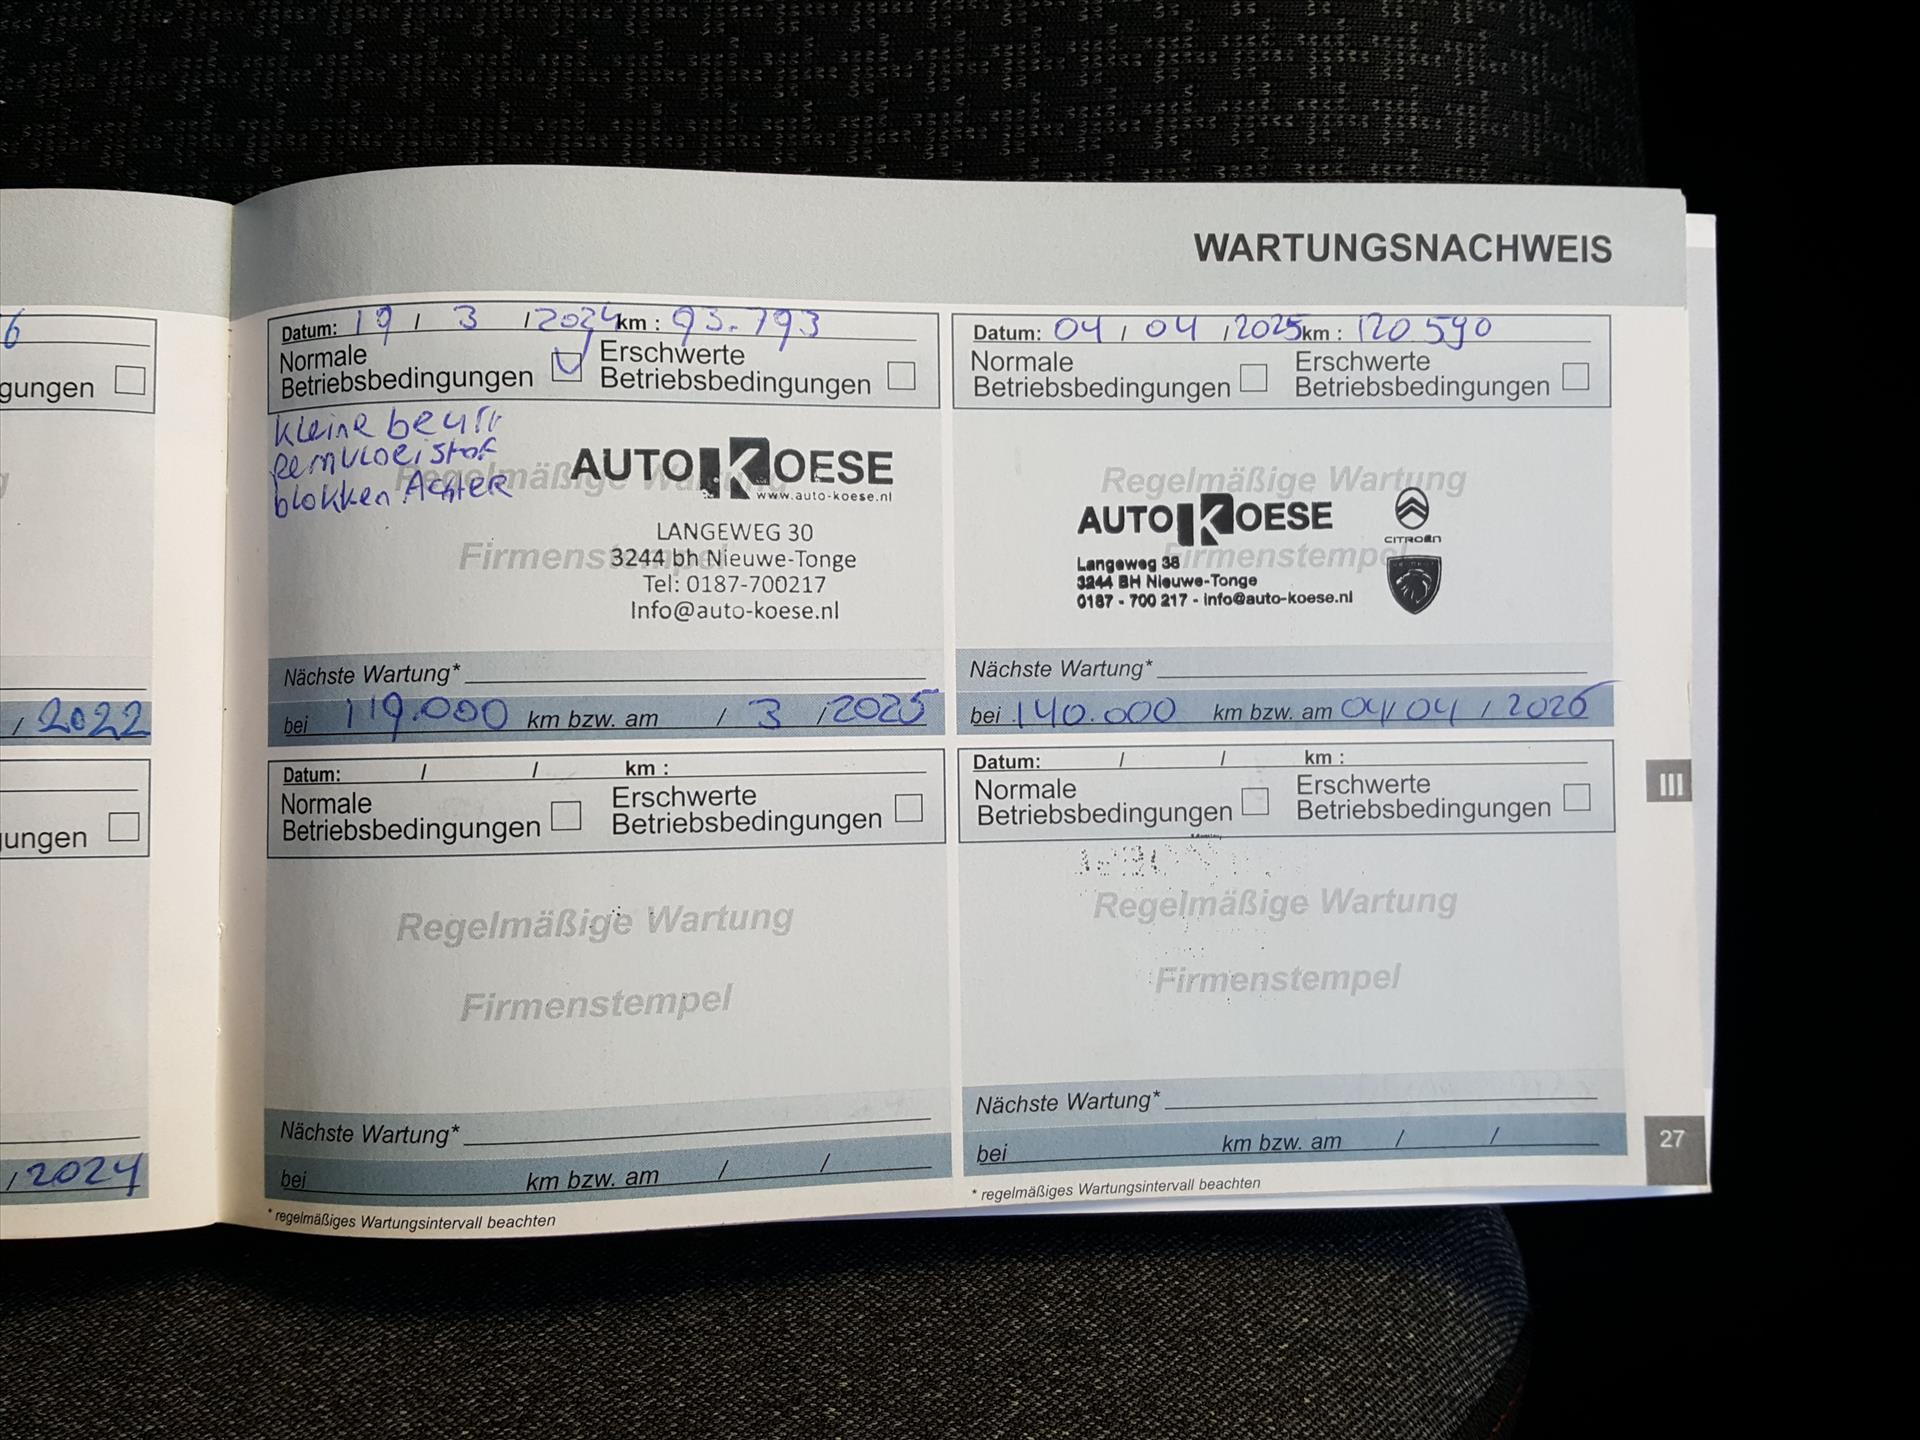 WARTUNGSNACHWEIS
6
gungen
/ 2022
gungen
/ 2024
Datum: 19 / 3 / 2024 km : 93.793
Normale
Betriebsbedingungen
Erschwerte
Betriebsbedingungen
kleine beurt
Remvloeistof
blokken Achter
Regelmäßige Wartung
AUTO KOESE
www.auto-koese.nl
LANGEWEG 30
Firmenstempel
3244 bh Nieuwe-Tonge
Tel: 0187-700217
Info@auto-koese.nl
Nächste Wartung*
bei 119.000 km bzw. am / 3 / 2025
Datum: 04 / 04 / 2025 km : 120590
Normale
Betriebsbedingungen
Erschwerte
Betriebsbedingungen
Regelmäßige Wartung
AUTO KOESE
CITROËN
Firmenstempel
Langeweg 38
3244 BH Nieuwe-Tonge
0187 - 700 217 - info@auto-koese.nl
Nächste Wartung*
bei 140.000 km bzw. am 04/04 / 2026
Datum: / / km :
Normale
Betriebsbedingungen
Erschwerte
Betriebsbedingungen
Regelmäßige Wartung
Firmenstempel
Nächste Wartung*
bei km bzw. am / /
* regelmäßiges Wartungsintervall beachten
Datum: / / km :
Normale
Betriebsbedingungen
Erschwerte
Betriebsbedingungen
Regelmäßige Wartung
Firmenstempel
Nächste Wartung*
bei km bzw. am / /
* regelmäßiges Wartungsintervall beachten
III
27